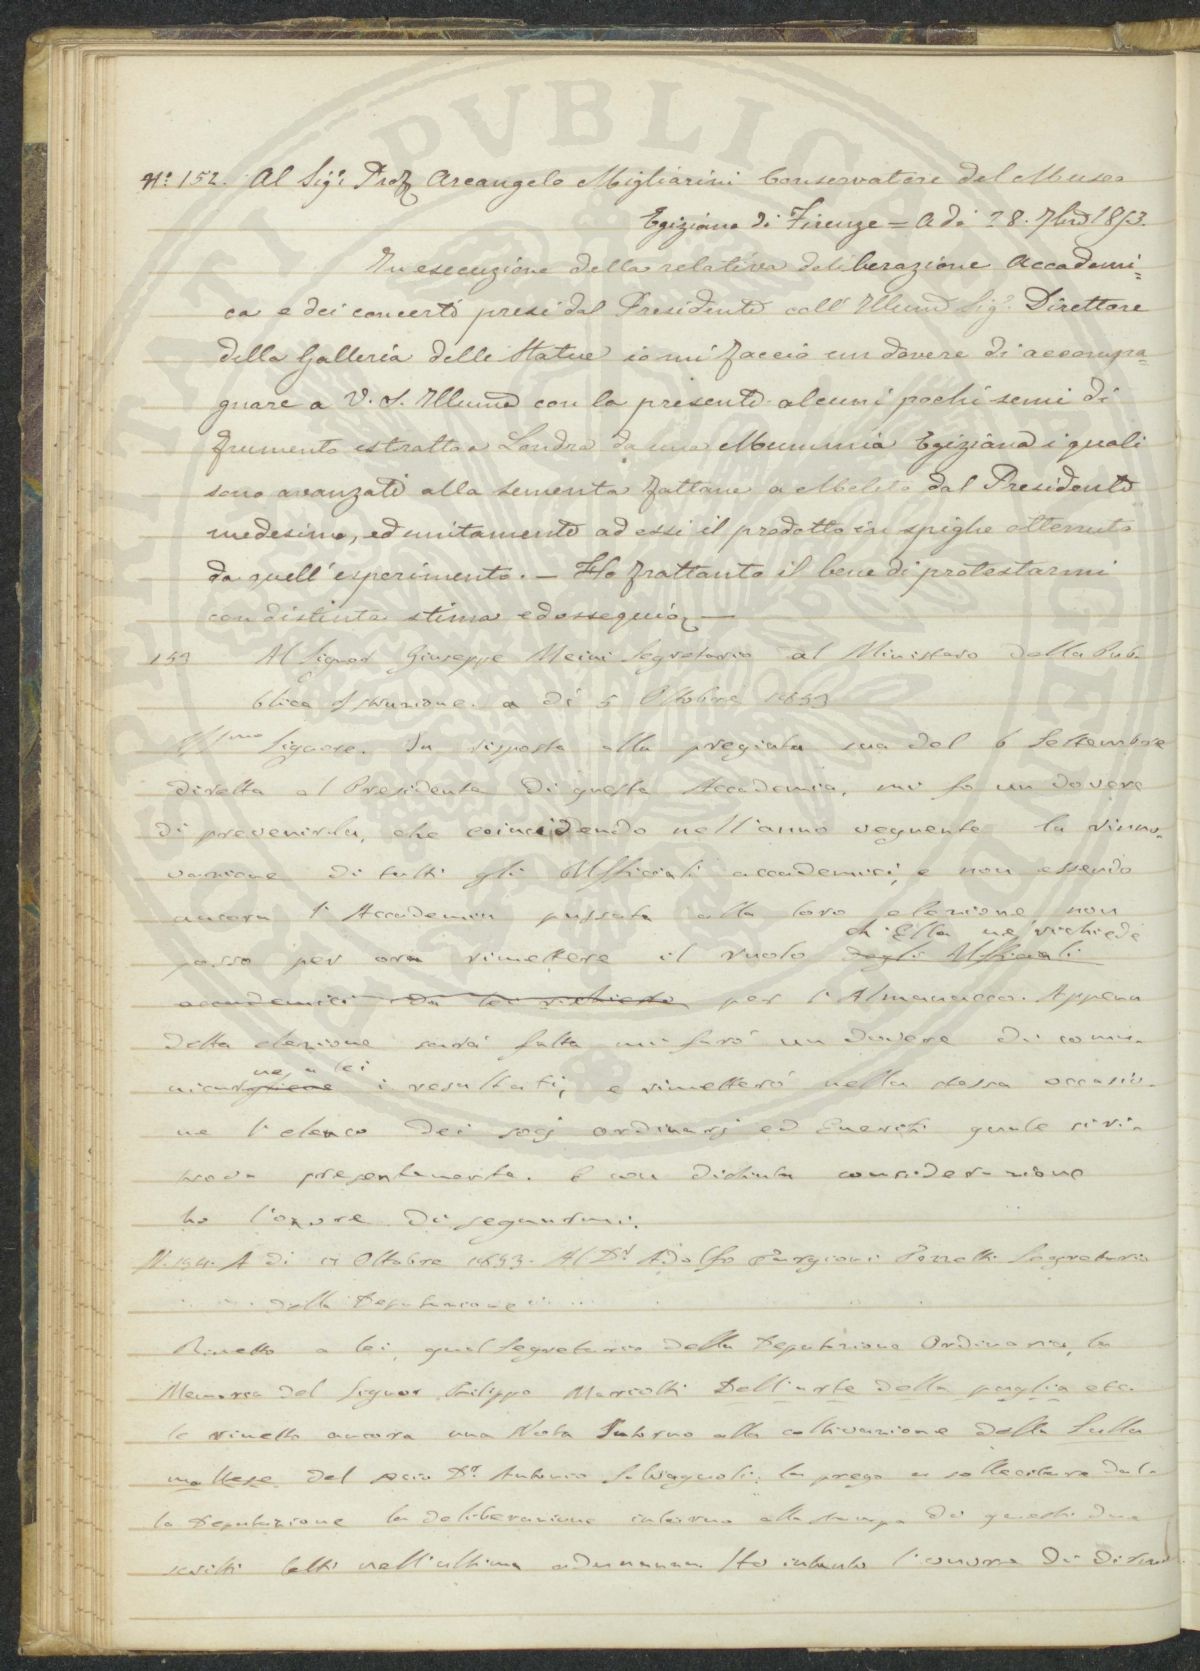 N.° 152. Al Sig.r Prof. Arcangelo Migliarini Conservatore del Museo
Egiziano di Firenze = A dì 28. 7bre 1853.
In esecuzione della relativa deliberazione Accademi=
ca e dei concerti presi dal Presidente coll' Illmo Sig.r Direttore
della Galleria delle Statue io mi faccio un dovere di accompa=
gnare a V. S. Illma con la presente alcuni pochi semi di
frumento estratto a Londra da una Mummia Egiziana i quali
sono avanzati alla sementa fattane a Meleto dal Presidente
medesimo, ed unitamente ad essi il prodotto in spighe ottenuto
da quell' esperimento. — Ho frattanto il bene di protestarmi
con distinta stima ed ossequio —
153 Al Signor Giuseppe Meini Segretario al Ministero della Pub-
blica Istruzione. a dì 5 Ottobre 1853
Illmo Signore. In risposta alla pregiata sua del 6 Settembre
diretta al Presidente di questa Accademia, mi fo un dovere
di prevenirla, che coincidendo nell'anno vegnente la rinno-
vazione di tutti gli Uffiziali accademici, e non essendo
ancora l'Accademia passata alla loro elezione non
ch'Ella ne richiede
posso per ora rimettere il ruolo degli Uffiziali
accademici da lei richiesto per l'Almanacco. Appena
detta elezione sarà fatta mi farò un dovere di comu-
ne a lei
nicargliene i resultati, e rimetterò nella stessa occasio-
ne l'elenco dei socj ordinarj ed Emeriti quale si ri-
trova presentemente. E con distinta considerazione
ho l'onore di segnarmi.
N. 154. A dì 17 Ottobre 1853. Al Dr Adolfo Targioni Tozzetti Segretario
della Deputazione
Rimetto a lei, qual Segretario della Deputazione Ordinaria, la
Memoria del Signor Filippo Mariotti Dell'arte della paglia etc.
le rimetto ancora una Nota Intorno alla coltivazione della Sulla
maltese del socio Dr. Antonio Salvagnoli; la prego a sollecitare dal-
la Deputazione la deliberazione intorno alla stampa di questi due
scritti letti nell'ultima adunanza. Ho intanto l'onore di dirmi